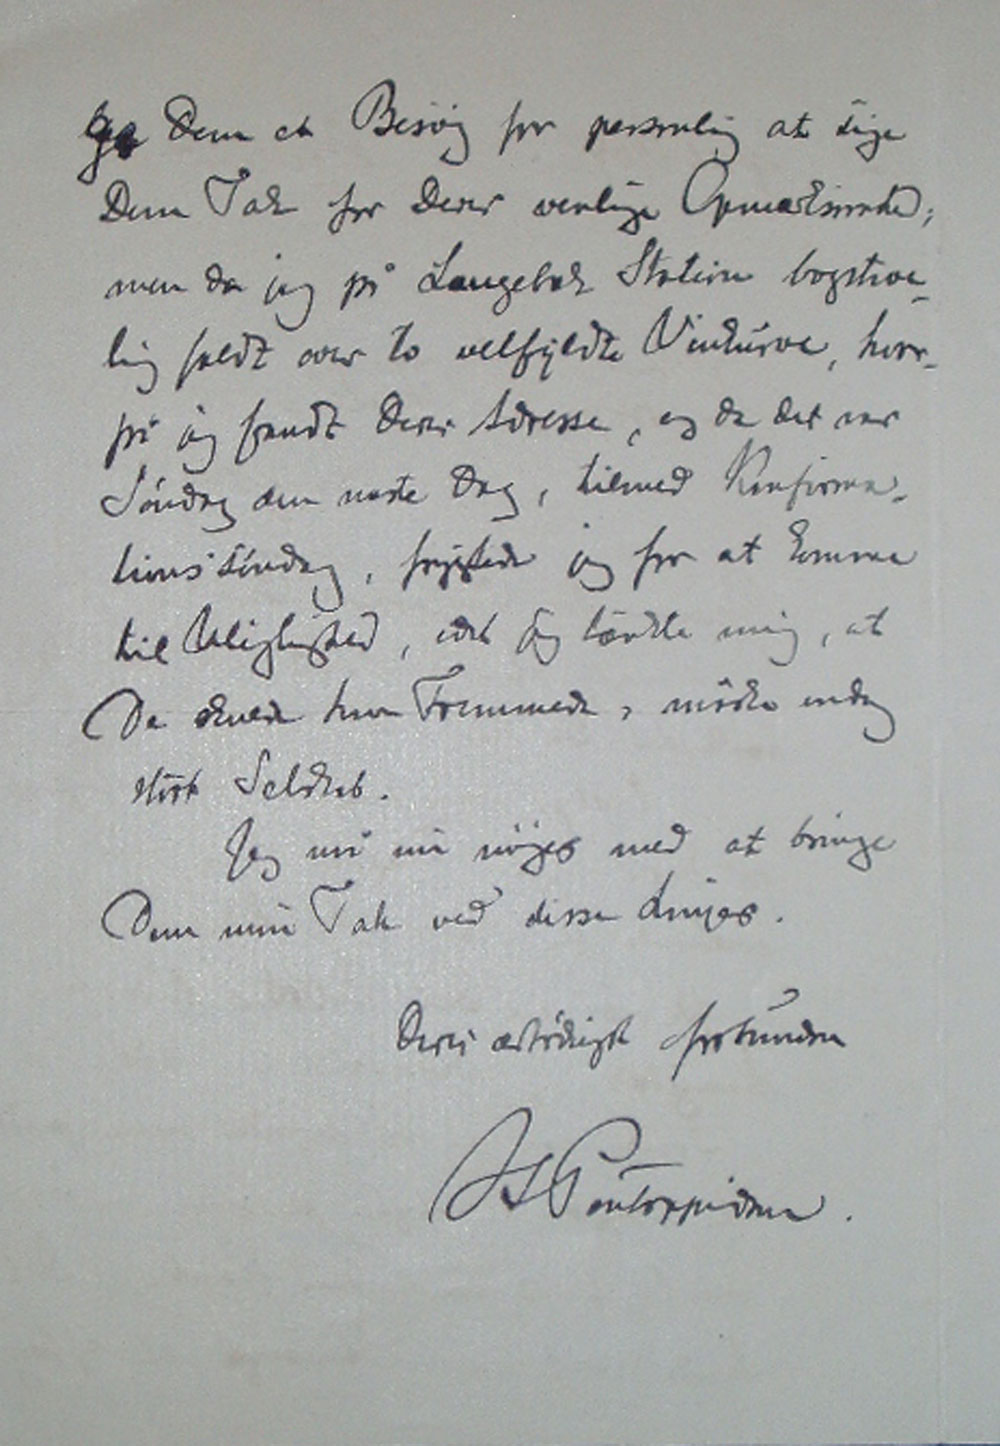 gøre Dem et Besøg for personlig at sige
Dem Tak for Deres venlige Opmærksomhed;
men da jeg på Langebæk Station bogstave-
lig faldt over to velfyldte Vinkurve, hvor-
på jeg fandt Deres Adresse, og da det var
Søndag den næste Dag, tilmed Konfirma-
tionssöndag, frygtede jeg for at komme
til Ulejlighed, idet jeg tænkte mig, at
De skulde have Fremmede, måske endog
stort Selskab.
Jeg må nu nöjes med at bringe
Dem min Tak ved disse Linjer.
Deres ærbödigst forbundne
H Pontoppidan.